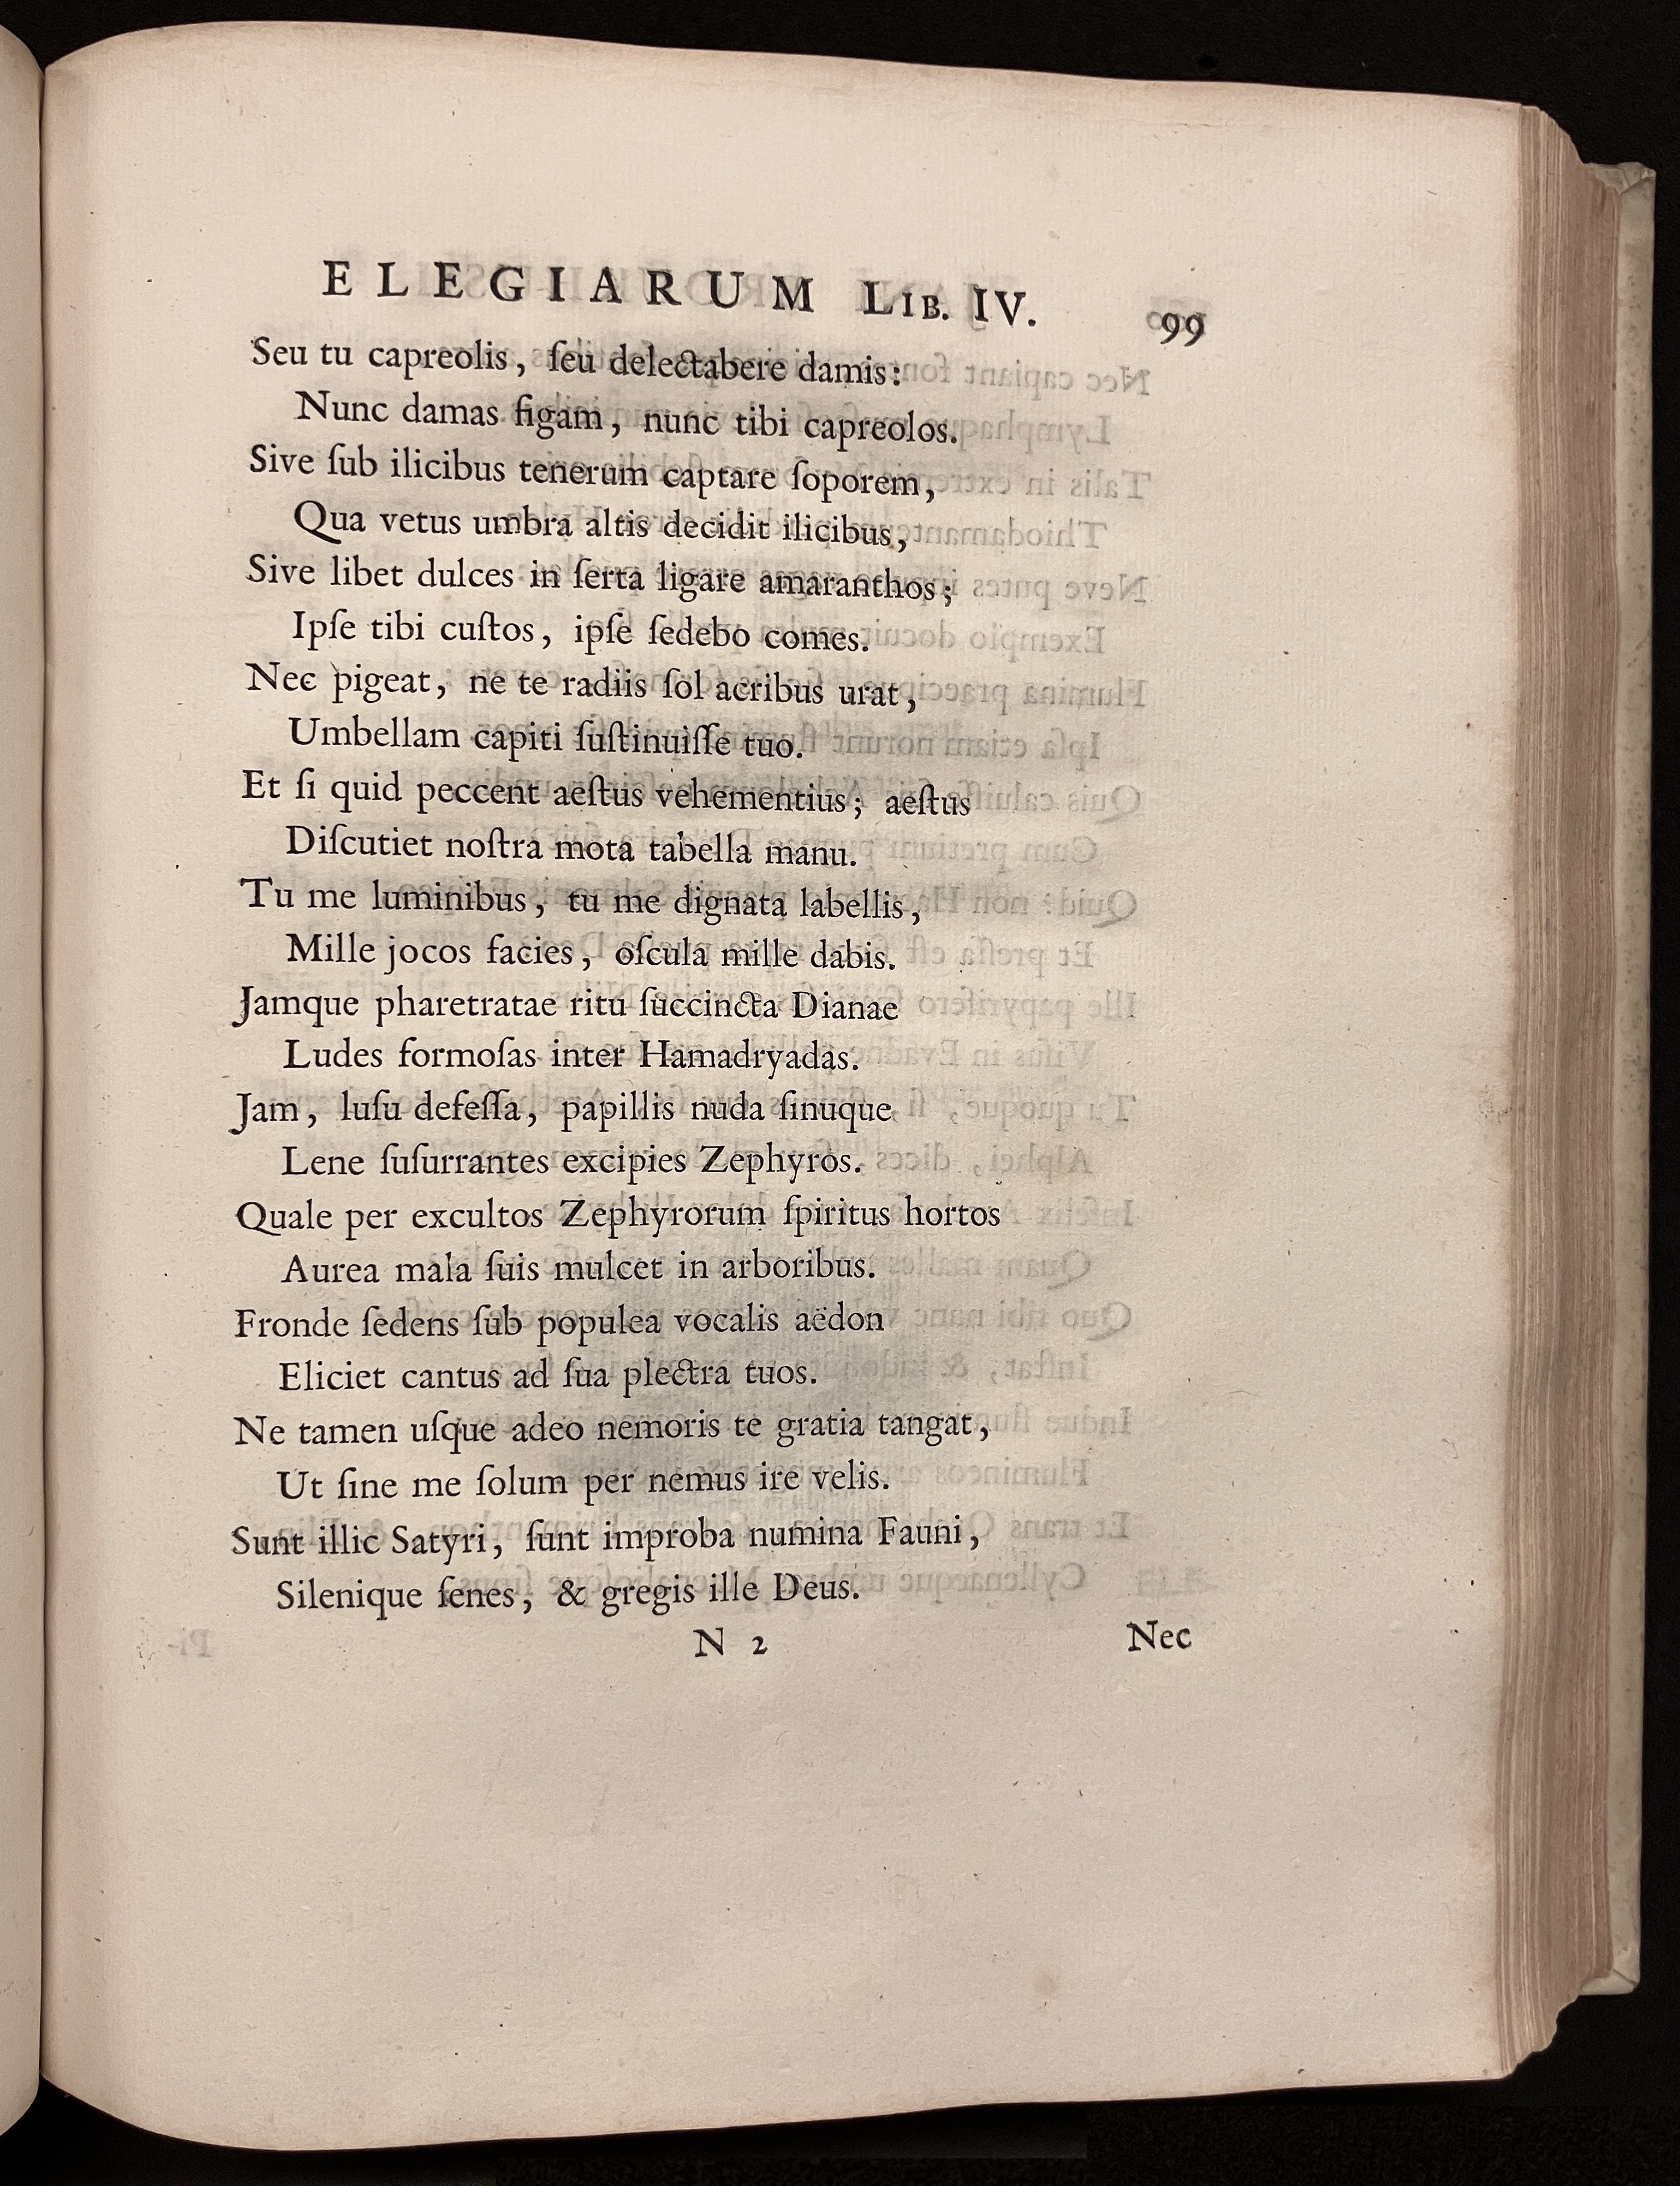 ELEGIARUM LIB. IV. 99
Seu tu capreolis, ſeu delectabere damis:
Nunc damas figam, nunc tibi capreolos.
Sive ſub ilicibus tenerum captare ſoporem,
Qua vetus umbra altis decidit ilicibus,
Sive libet dulces in ſerta ligare amaranthos;
Ipſe tibi cuſtos, ipſe ſedebo comes.
Nec pigeat, ne te radiis ſol acribus urat,
Umbellam capiti ſuſtinuiſſe tuo.
Et ſi quid peccent aeſtus vehementius; aeſtus
Diſcutiet noſtra mota tabella manu.
Tu me luminibus, tu me dignata labellis,
Mille jocos facies, oſcula mille dabis.
Jamque pharetratae ritu ſuccincta Dianae
Ludes formoſas inter Hamadryadas.
Jam, luſu defeſſa, papillis nuda ſinuque
Lene ſuſurrantes excipies Zephyros.
Quale per excultos Zephyrorum ſpiritus hortos
Aurea mala ſuis mulcet in arboribus.
Fronde ſedens ſub populea vocalis aëdon
Eliciet cantus ad ſua plectra tuos.
Ne tamen uſque adeo nemoris te gratia tangat,
Ut ſine me ſolum per nemus ire velis.
Sunt illic Satyri, ſunt improba numina Fauni,
Silenique ſenes, & gregis ille Deus.
N 2 Nec